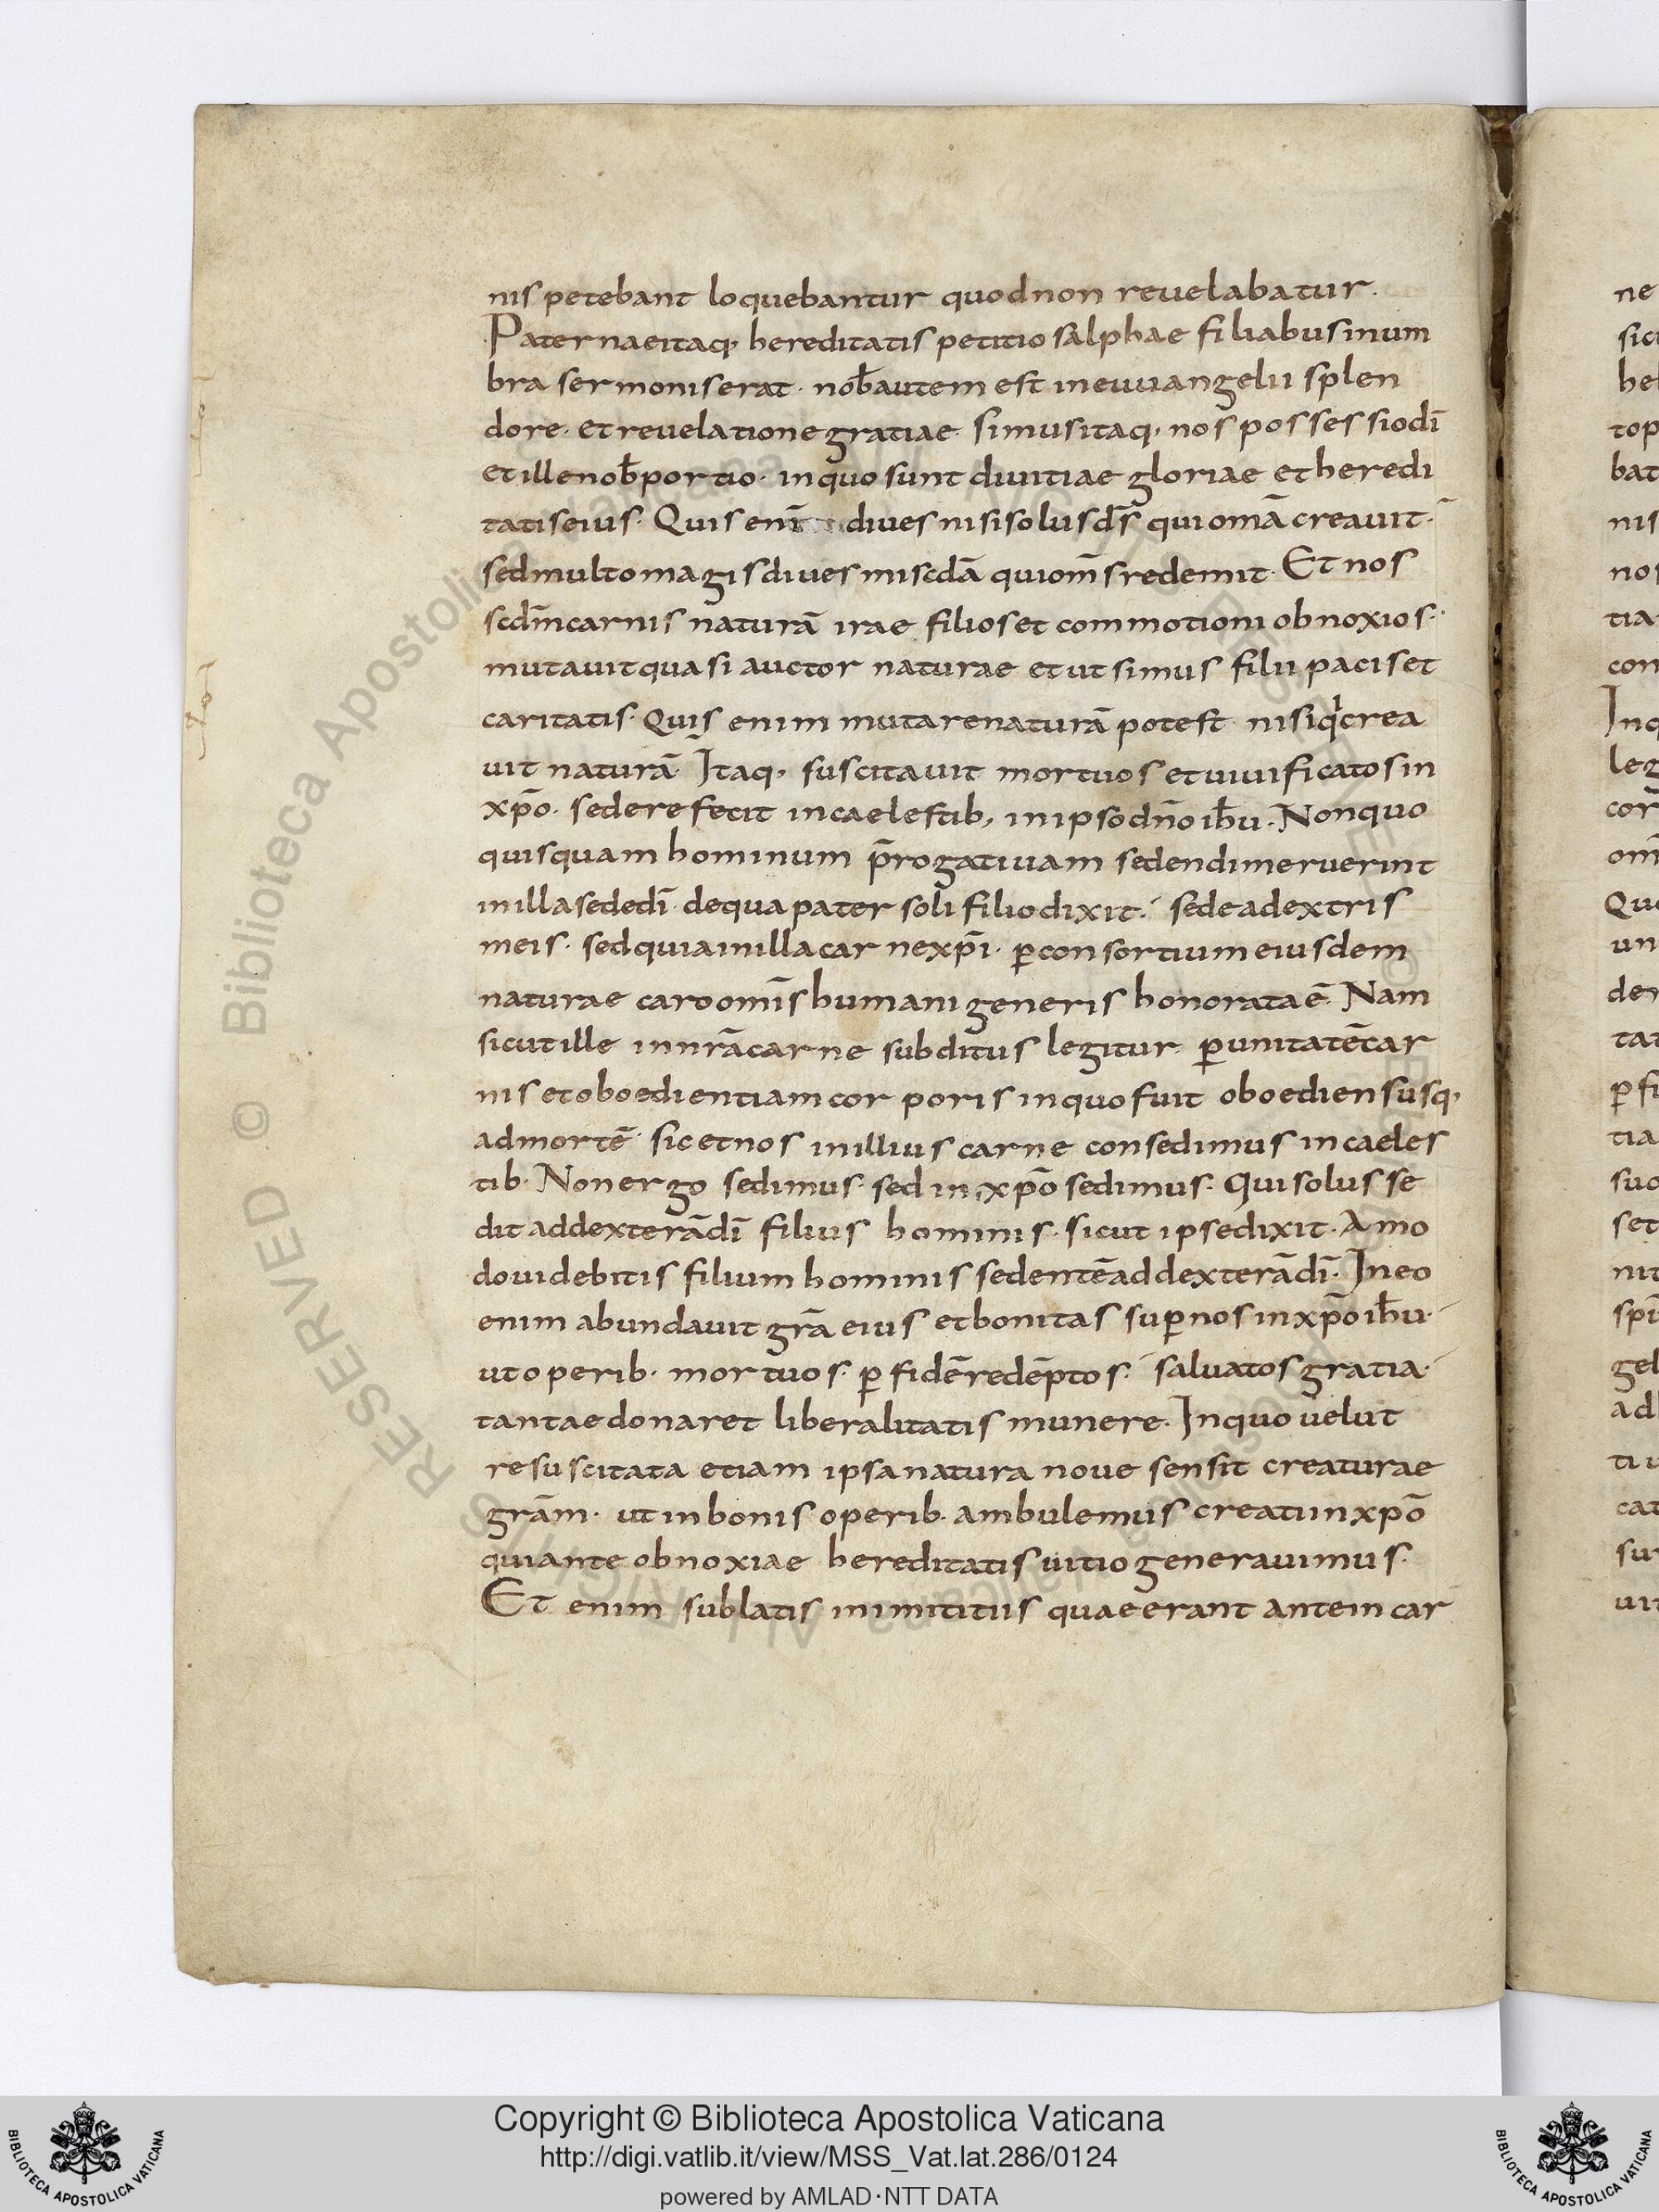 nis petebant loquebantur quod non reuelabatur.
Paternae itaq, hereditatis petitio salphae filiabus in um
bra sermonis erat · nob̄ autem est in euuangelii splen
dore · et reuelatione gratiae · simus itaq, nos possessio dī
et ille nob̄ portio · in quo sunt diuitiae gloriae et heredi
tatis eius · Quis enī diues nisi solus ds̄ qui omā creauit ·
sed multo magis diues miscdā qui om̄s redemit · Et nos
scdm̄ carnis naturā irae filios et commotioni obnoxios ·
mutauit quasi auctor naturae et ut simus filii pacis et
caritatis · Quis enim mutare naturā potest nisi q crea
uit naturā · Itaq, suscitauit mortuos et uiuificatos in
xp̄o · sedere fecit in caelestib, in ipso dn̄o ih̄u · Non quo
quisquam hominum p̄rogatiuam sedendi meruerint
in illa sede dī · de qua pater soli filio dixit · sede a dextris
meis · sed quia in illa carne xp̄i · ꝑ consortium eiusdem
naturae caro om̄is humani generis honorata ē · Nam
sicut ille in nr̄a carne subditus legitur · ꝑ unitatē car
nis et oboedientiam corporis in quo fuit oboediens usq,
ad mortē · sic et nos in illius carne consedimus in caeles
tib · Non ergo sedimus · sed in xp̄o sedimus · Qui solus se
dit ad dexterā dī filius hominis · sicut ipse dixit · Amo
do uidebitis filium hominis sedentē ad dexterā dī · In eo
enim abundauit gr̄a eius et bonitas suꝑ nos in xp̄o ih̄u ·
ut operib · mortuos · ꝑ fidē redēptos · saluatos gratia ·
tantae donaret liberalitatis munere · In quo uelut
resuscitata etiam ipsa natura noue sensit creaturae
gr̄am · ut in bonis operib · ambulemus creati in xpō
qui ante obnoxiae hereditatis uitio generauimus ·
Et enim sublatis inimititiis quae erant ante in car
RESERVED © Biblioteca Apostolica Vaticana
Copyright © Biblioteca Apostolica Vaticana
http://digi.vatlib.it/view/MSS_Vat.lat.286/0124
powered by AMLAD·NTT DATA
BIBLIOTECA APOSTOLICA VATICANA
BIBLIOTECA APOSTOLICA VATICANA